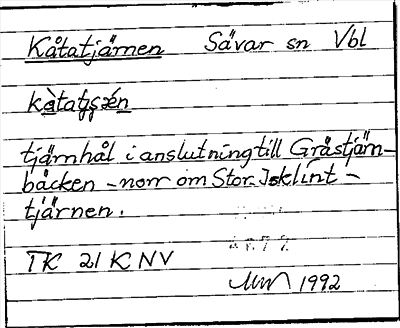 Kåtatjärnen Sävar sn Vbl
tjärnhål i anslutning till Gråstjärn-
bäcken - norr om Stor-Isklint-
tjärnen.
TK 21 K NV
1992